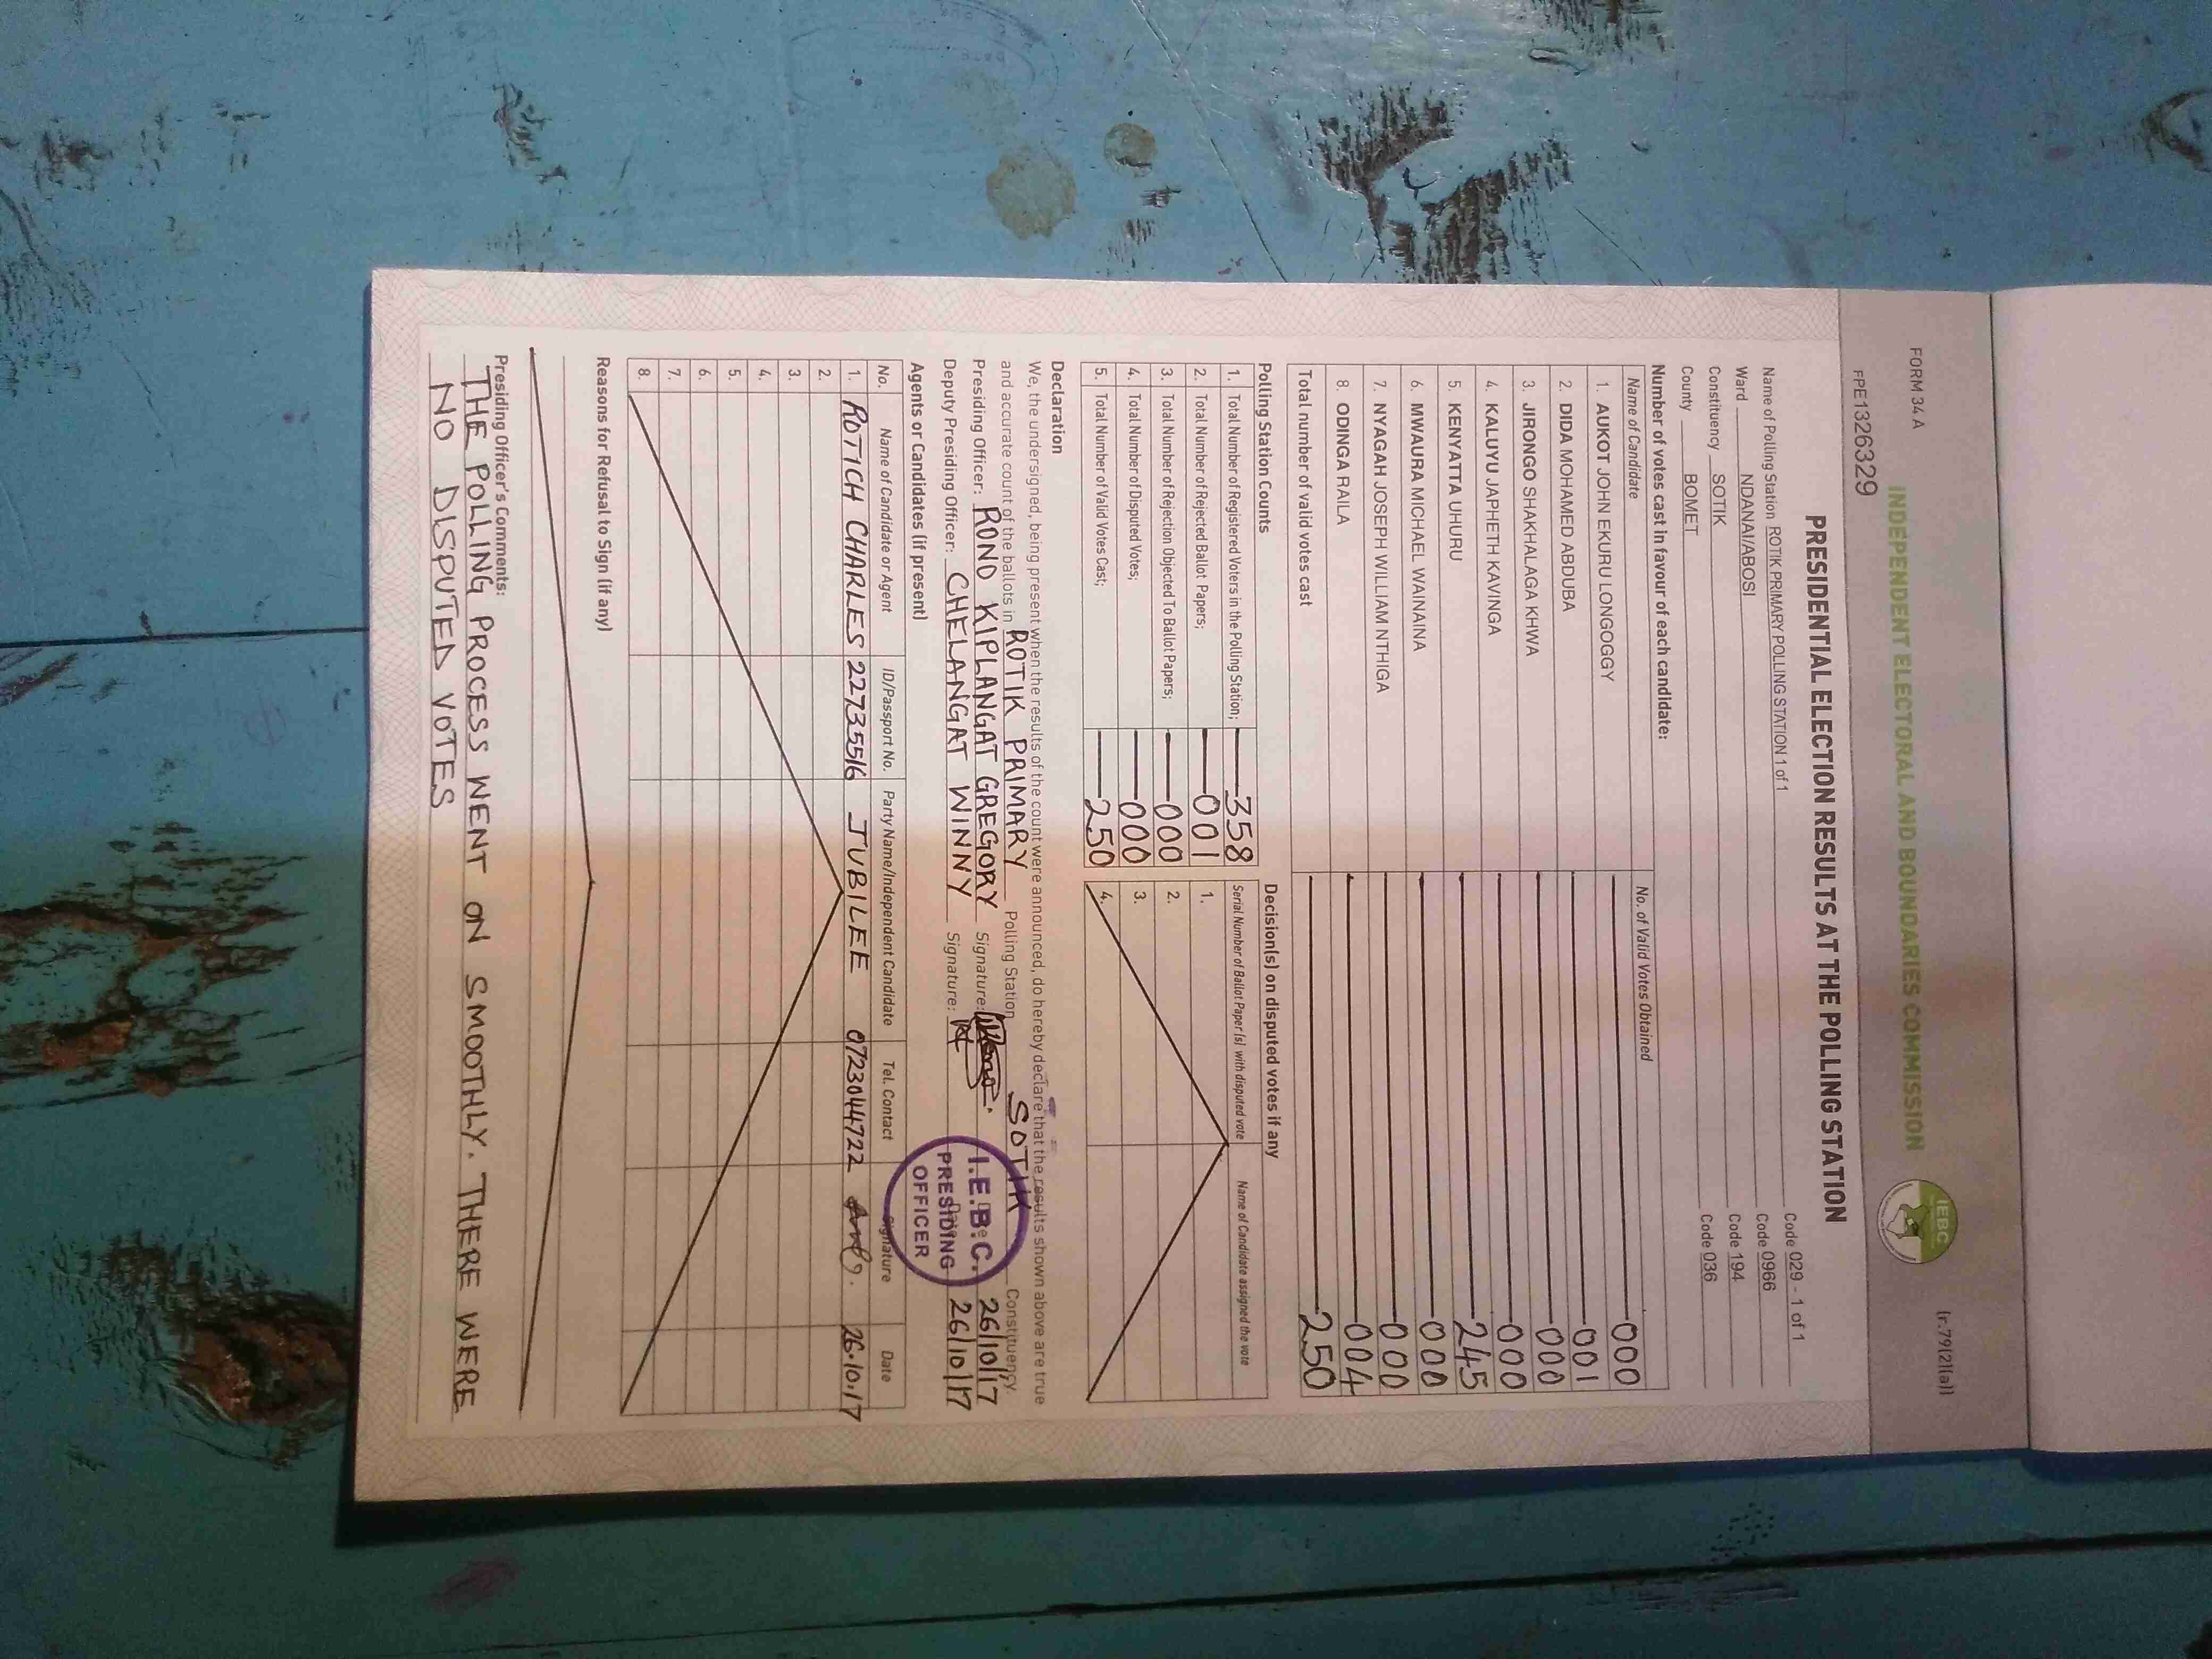 FORM 34 A
(r.79(2)(a))
INDEPENDENT ELECTORAL AND BOUNDARIES COMMISSION
IEBC
FPE1326329
PRESIDENTIAL ELECTION RESULTS AT THE POLLING STATION
Name of Polling Station ROTIK PRIMARY POLLING STATION 1 of 1 Code 029 - 1 of 1
Ward NDANAI/ABOSI Code 0966
Constituency SOTIK Code 194
County BOMET Code 036
Number of votes cast in favour of each candidate:
Name of Candidate No. of Valid Votes Obtained
1. AUKOT JOHN EKURU LONGOGGY 000
2. DIDA MOHAMED ABDUBA 001
3. JIRONGO SHAKHALAGA KHWA 000
4. KALUYU JAPHETH KAVINGA 000
5. KENYATTA UHURU 245
6. MWAURA MICHAEL WAINAINA 000
7. NYAGAH JOSEPH WILLIAM NTHIGA 000
8. ODINGA RAILA 004
Total number of valid votes cast 250
Polling Station Counts
1. Total Number of Registered Voters in the Polling Station; 358
2. Total Number of Rejected Ballot Papers; 001
3. Total Number of Rejection Objected To Ballot Papers; 000
4. Total Number of Disputed Votes; 000
5. Total Number of Valid Votes Cast; 250
Decision(s) on disputed votes if any
Serial Number of Ballot Paper (s) with disputed vote Name of Candidate assigned the vote
1.
2.
3.
4.
Declaration
We, the undersigned, being present when the results of the count were announced, do hereby declare that the results shown above are true
and accurate count of the ballots in ROTIK PRIMARY Polling Station SOTIK Constituency
Presiding Officer: RONO KIPLANGAT GREGORY Signature: 26/10/17
Deputy Presiding Officer: CHELANGAT WINNY Signature: 26/10/17
I.E.B.C.
PRESIDING
OFFICER
Agents or Candidates (if present)
No. Name of Candidate or Agent ID/Passport No. Party Name/Independent Candidate Tel. Contact Signature Date
1. ROTICH CHARLES 22735516 JUBILEE 0723044722 26.10.17
2.
3.
4.
5.
6.
7.
8.
Reasons for Refusal to Sign (if any)
Presiding Officer's Comments:
THE POLLING PROCESS WENT ON SMOOTHLY. THERE WERE
NO DISPUTED VOTES